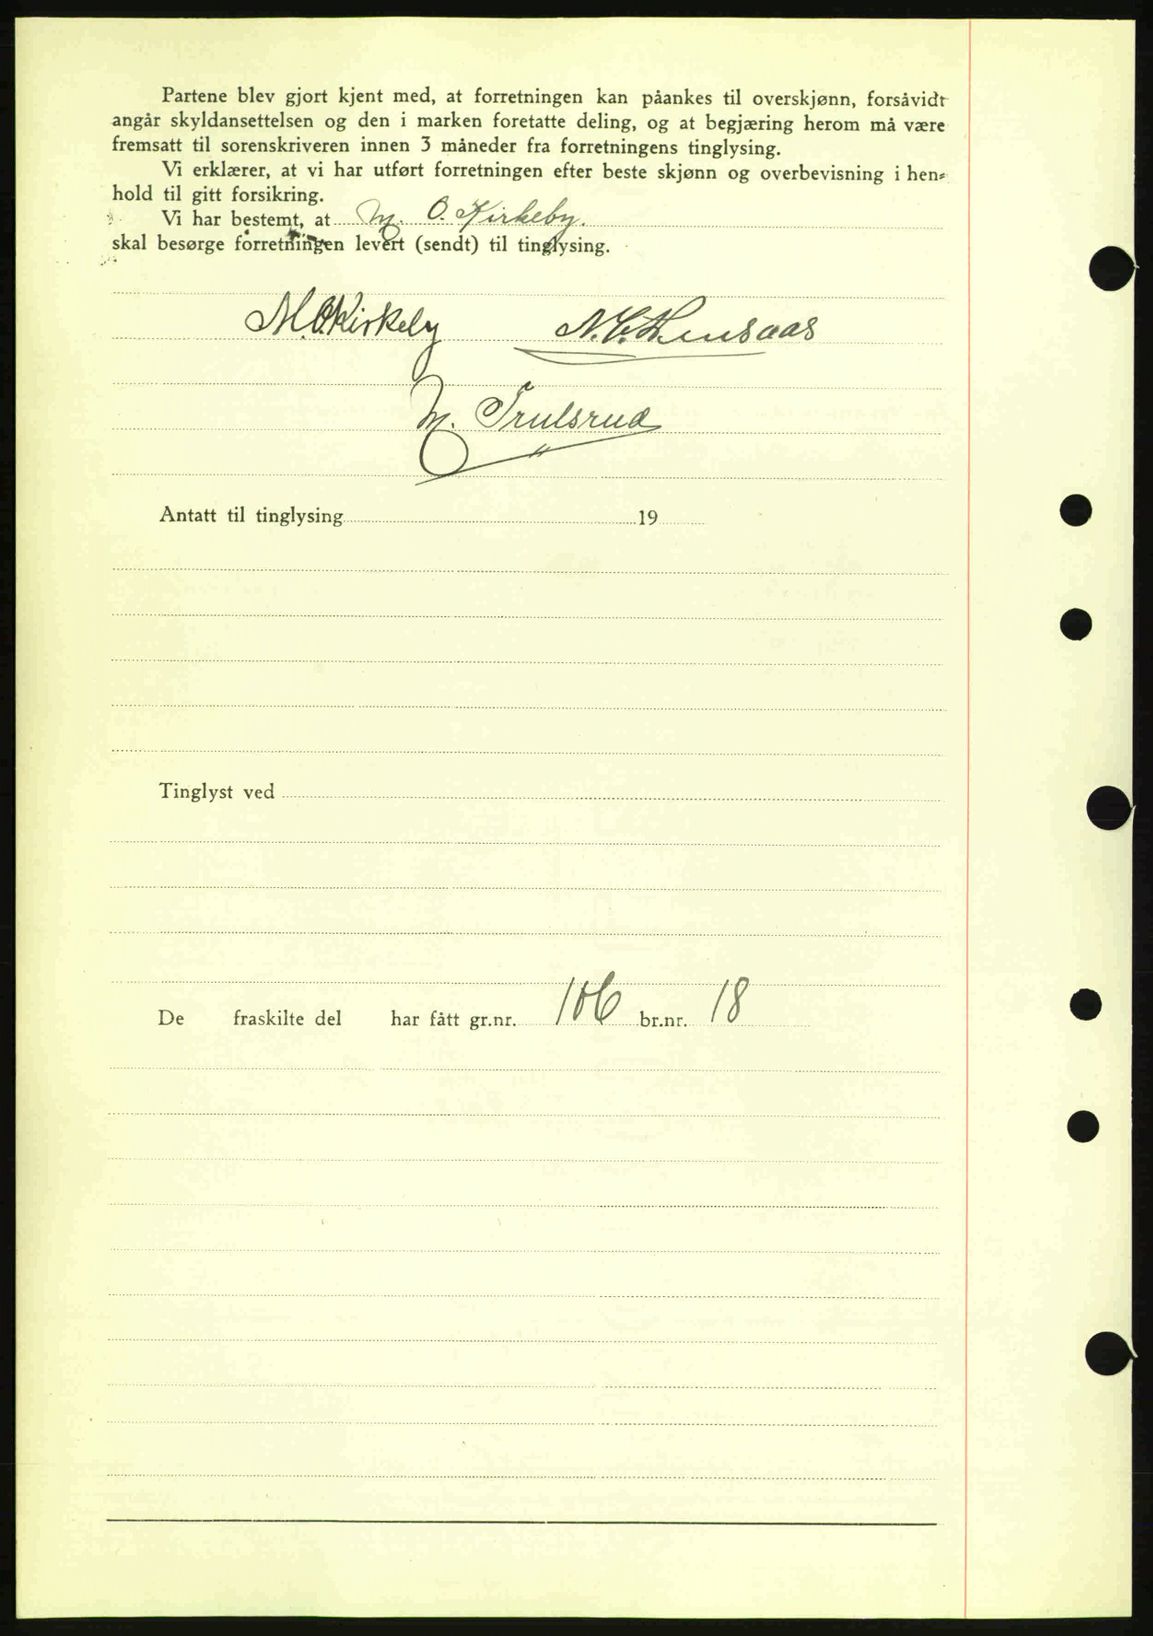 Partene blev gjort kjent med, at forretningen kan påankes til overskjønn, forsåvidt
angår skyldansettelsen og den i marken foretatte deling, og at begjæring herom må være
fremsatt til sorenskriveren innen 3 måneder fra forretningens tinglysing.
Vi erklærer, at vi har utført forretningen efter beste skjønn og overbevisning i hen-
hold til gitt forsikring.
Vi har bestemt, at M. O. Kirkeby.
skal besørge forretningen levert (sendt) til tinglysing.
M. O. Kirkeby
M. Trulsrud
Antatt til tinglysing 19
Tinglyst ved
De fraskilte del har fått gr.nr. 106 br.nr. 18